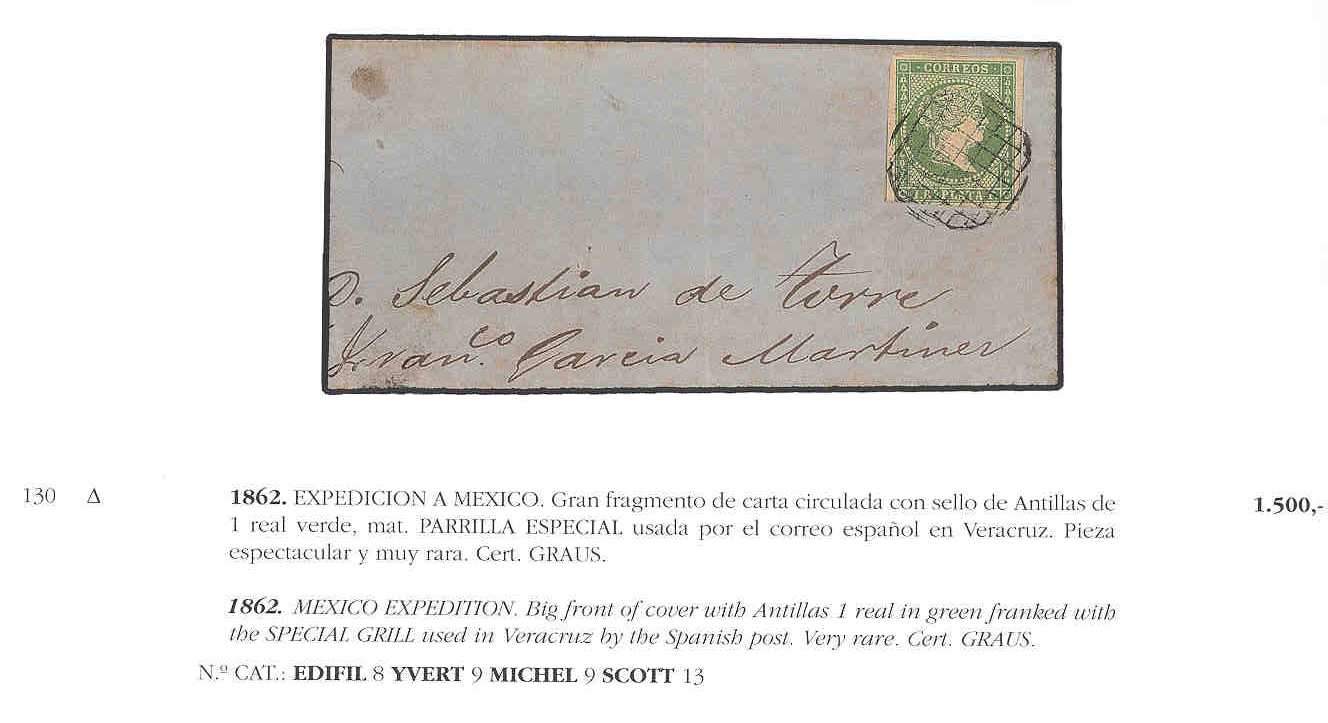 CORREOS
D. Sebastian de Torre
Fran.co Garcia Martinez
130 Δ 1862. EXPEDICION A MEXICO. Gran fragmento de carta circulada con sello de Antillas de 1.500,-
1 real verde, mat. PARRILLA ESPECIAL usada por el correo español en Veracruz. Pieza
espectacular y muy rara. Cert. GRAUS.
1862. MEXICO EXPEDITION. Big front of cover with Antillas 1 real in green franked with
the SPECIAL GRILL used in Veracruz by the Spanish post. Very rare. Cert. GRAUS.
N.º CAT.: EDIFIL 8 YVERT 9 MICHEL 9 SCOTT 13